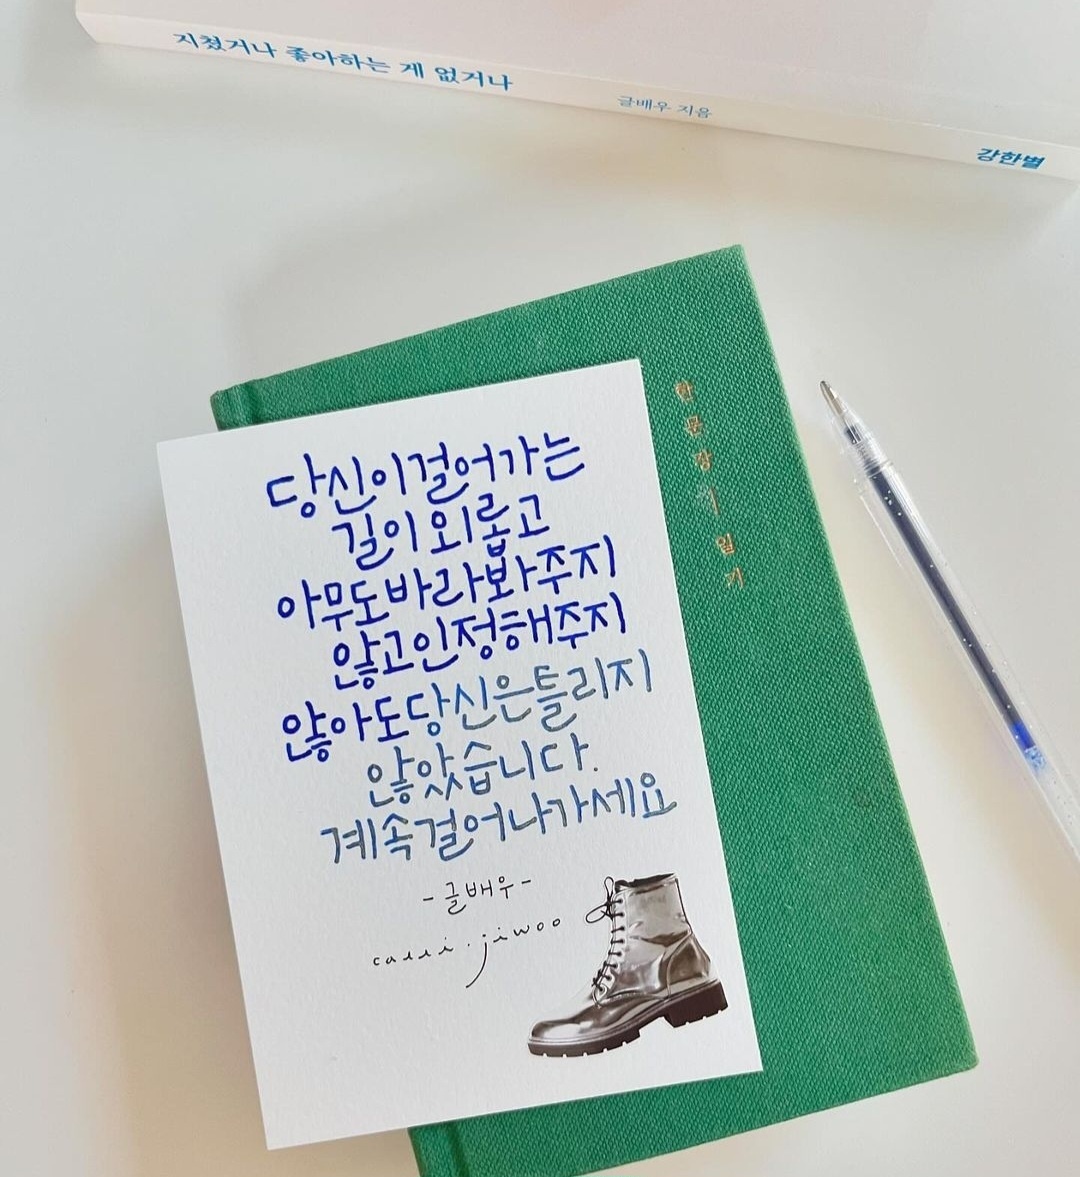 지쳤거나 좋아하는 게 없거나
글배우 지음
강한별
한 문장 일기
당신이걸어가는
길이외롭고
아무도바라봐주지
않고인정해주지
않아도당신은틀리지
않았습니다.
계속걸어나가세요
-글배우-
calli.jiwoo